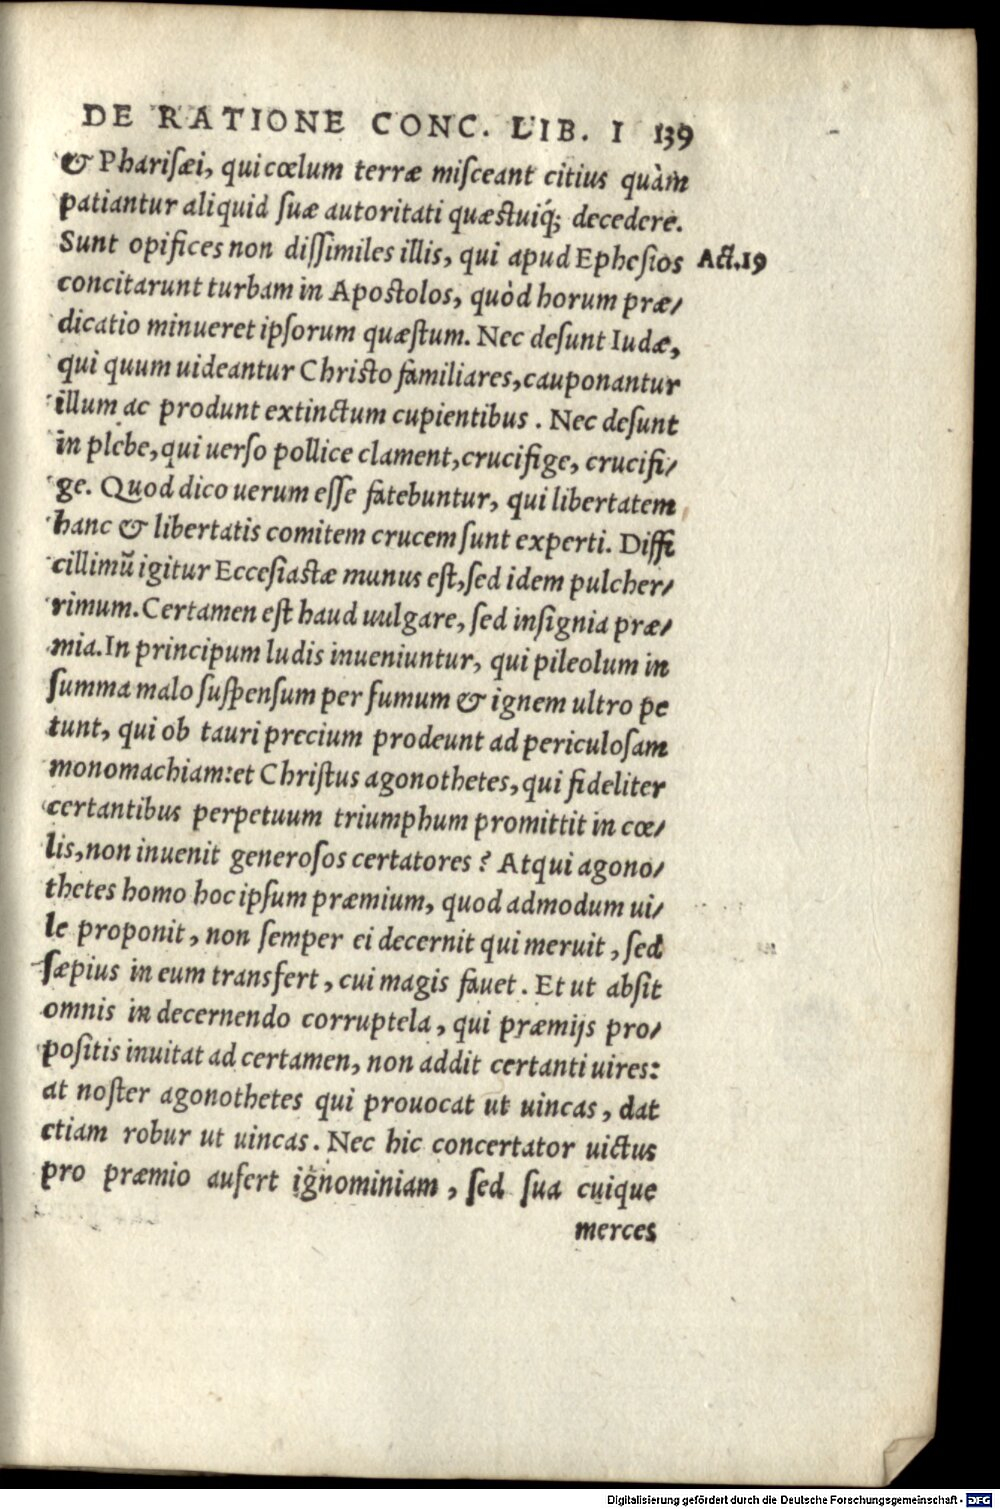 DE RATIONE CONC. LIB. I 139
& Pharisæi, qui cœlum terræ misceant citius quàm
patiantur aliquid suæ autoritati quæstuiq́; decedere.
Sunt opifices non dissimiles illis, qui apud Ephesios Act.19
concitarunt turbam in Apostolos, quòd horum præ/
dicatio minueret ipsorum quæstum. Nec desunt Iudæ,
qui quum uideantur Christo familiares, cauponantur
illum ac produnt extinctum cupientibus. Nec desunt
in plebe, qui uerso pollice clament, crucifige, crucifi/
ge. Quod dico uerum esse fatebuntur, qui libertatem
hanc & libertatis comitem crucem sunt experti. Diffi
cillimũ igitur Ecclesiastæ munus est, sed idem pulcher/
rimum. Certamen est haud uulgare, sed insignia præ/
mia. In principum ludis inueniuntur, qui pileolum in
summa malo suspensum per fumum & ignem ultro pe
tunt, qui ob tauri precium prodeunt ad periculosam
monomachiam: et Christus agonothetes, qui fideliter
certantibus perpetuum triumphum promittit in cœ/
lis, non inuenit generosos certatores? Atqui agono/
thetes homo hoc ipsum præmium, quod admodum ui/
le proponit, non semper ei decernit qui meruit, sed
sæpius in eum transfert, cui magis fauet. Et ut absit
omnis in decernendo corruptela, qui præmijs pro/
positis inuitat ad certamen, non addit certanti uires:
at noster agonothetes qui prouocat ut uincas, dat
etiam robur ut uincas. Nec hic concertator uictus
pro præmio aufert ignominiam, sed sua cuique
merces
Digitalisierung gefördert durch die Deutsche Forschungsgemeinschaft - DFG